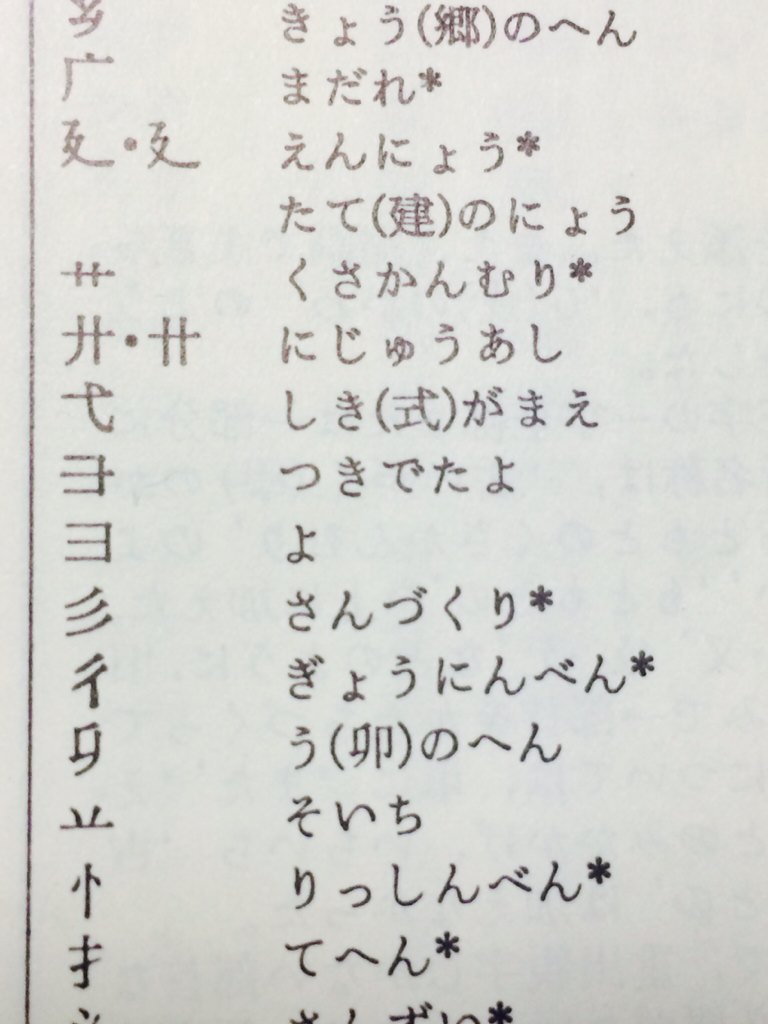 乡 きょう(郷)のへん
广 まだれ*
廴・廴 えんにょう*
たて(建)のにょう
艹 くさかんむり*
廾・廿 にじゅうあし
弋 しき(式)がまえ
彐 つきでたよ
ヨ よ
彡 さんづくり*
彳 ぎょうにんべん*
う(卯)のへん
そいち
忄 りっしんべん*
扌 てへん*
氵 さんずい*